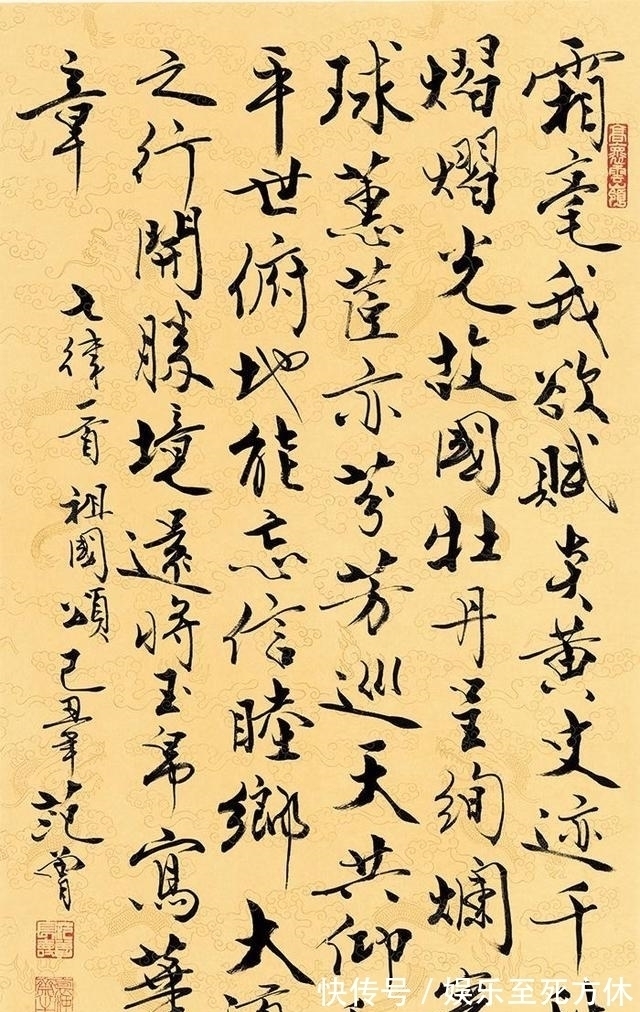 霜毫我欲賦炎黃史迹千
熠熠光故國牡丹呈絢爛
球蕙茝亦芬芳巡天共仰
平世俯地能忘信睦鄉大
之行開勝境還將玉帛寫華
章
七律一首祖國頌己丑年范曾
快传号／娱乐至死方休